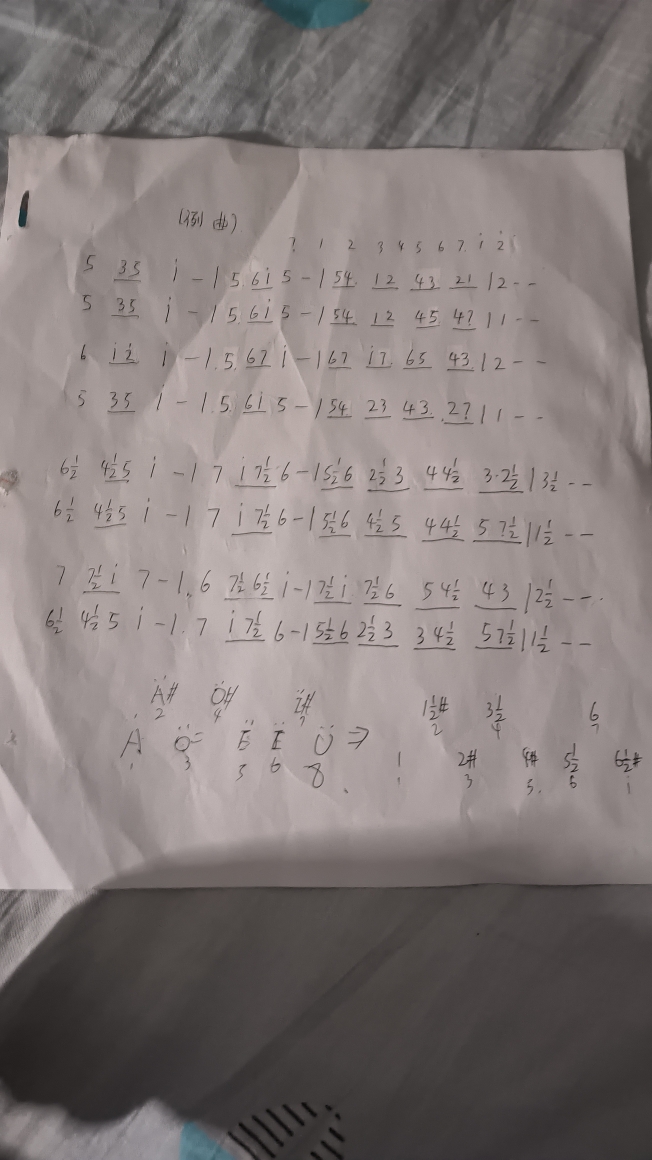 (例曲)
? 1 2 3 4 5 6 7. i 2̇
5 35 i - | 5. 6i 5 - | 54. 12 43 21 | 2 - -
5 35 i - | 5. 6i 5 - | 54. 12 45 4? | 1 - -
6 i2̇ i - | .5. 67 i - | 67 i7. 65 43. | 2 - -
5 35 i - | .5. 6i 5 - | 54. 23 43. .2? | 1 - -
6½ 4½5 i - | 7 i7½ 6 - | 5½6 2½3 44½ 3·2½ | 3½ - -
6½ 4½5 i - | 7 i7½ 6 - | 5½6 4½5 44½ 5?½ | 1½ - -
7 7½i 7 - | . 6 7½6½ i - | 7½i 7½6 54½ 43 | 2½ - - .
6½ 4½5 i - | . 7 i7½ 6 - | 5½6 2½3 34½ 57½ | 1½ - -
Ä# Ö# 1½# 3½ 6
2 4 2 4 7
Ȧ Ö= Ë Ë Ü ⇒ 1 2# 4# 5½ 6½#
1 3 5 6 8. 1 3 5. 6 i